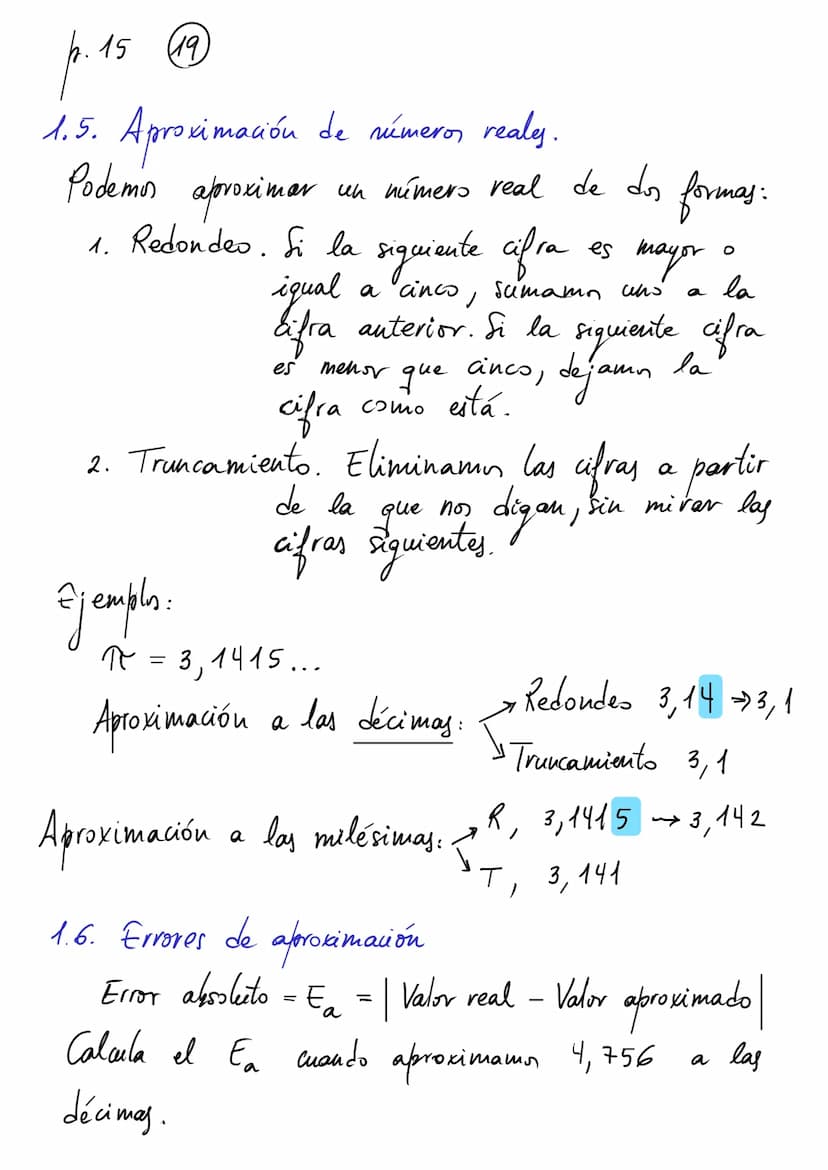 p. 15 19
1.5. Aproximación de números reales.
Podemos aproximar un número real de dos formas:
1. Redondeo. Si la siguiente cifra es mayor o
igual a cinco, sumamos uno a la
cifra anterior. Si la siguiente cifra
es menor que cinco, dejamos la
cifra como está.
2. Truncamiento. Eliminamos las cifras a partir
de la que nos digan, sin mirar las
cifras siguientes.
Ejemplos:
π = 3,1415...
Aproximación a las décimas: ↗ Redondeo 3,14 → 3,1
↘ Truncamiento 3,1
Aproximación a las milésimas: ↗ R, 3,1415 → 3,142
↘ T, 3,141
1.6. Errores de aproximación
Error absoluto = Ea = | Valor real - Valor aproximado |
Calcula el Ea cuando aproximamos 4,756 a las
décimas.